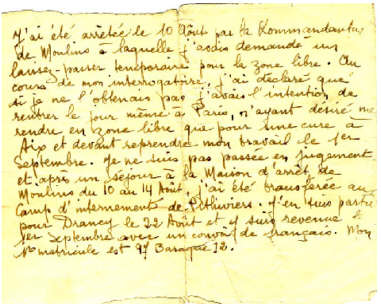 J'ai été arrêtée le 10 Août par la Kommandantur
de Moulins à laquelle j'avais demandé un
laissez-passer temporaire pour la zone libre. Au
cours de mon interrogatoire, j'ai déclaré que
si je ne l'obtenais pas j'avais l'intention de
rentrer le jour même à Paris, n'ayant désiré me
rendre en zone libre que pour une cure à
Aix et devant reprendre mon travail le 1er
Septembre. Je ne suis pas passée en jugement
et après un séjour à la Maison d'arrêt de
Moulins du 10 au 14 Août, j'ai été transférée au
Camp d'internement de Pithiviers. J'en suis partie
pour Drancy le 22 Août et y suis revenue le
1er Septembre avec un convoi de français. Mon
No matricule est 97 Baraque 12.